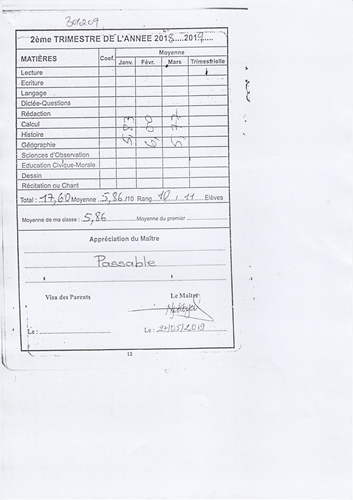 2ème TRIMESTRE DE L'ANNEE 2018.....2019.....
MATIÈRES Coef. Moyenne
Janv. Févr. Mars Trimestrielle
Lecture
Ecriture
Langage
Dictée-Questions
Rédaction
Calcul
Histoire
Géographie
Sciences d'Observation
Education Civique-Morale
Dessin
Récitation ou Chant
5,83 6,00 5,77
Total : 17,60 Moyenne 5,86 /10 Rang 10 / 11 Elèves
Moyenne de ma classe : 5,86 Moyenne du premier
Appréciation du Maître
Passable
Visa des Parents Le Maître
Le : Le : 24/05/2019
12